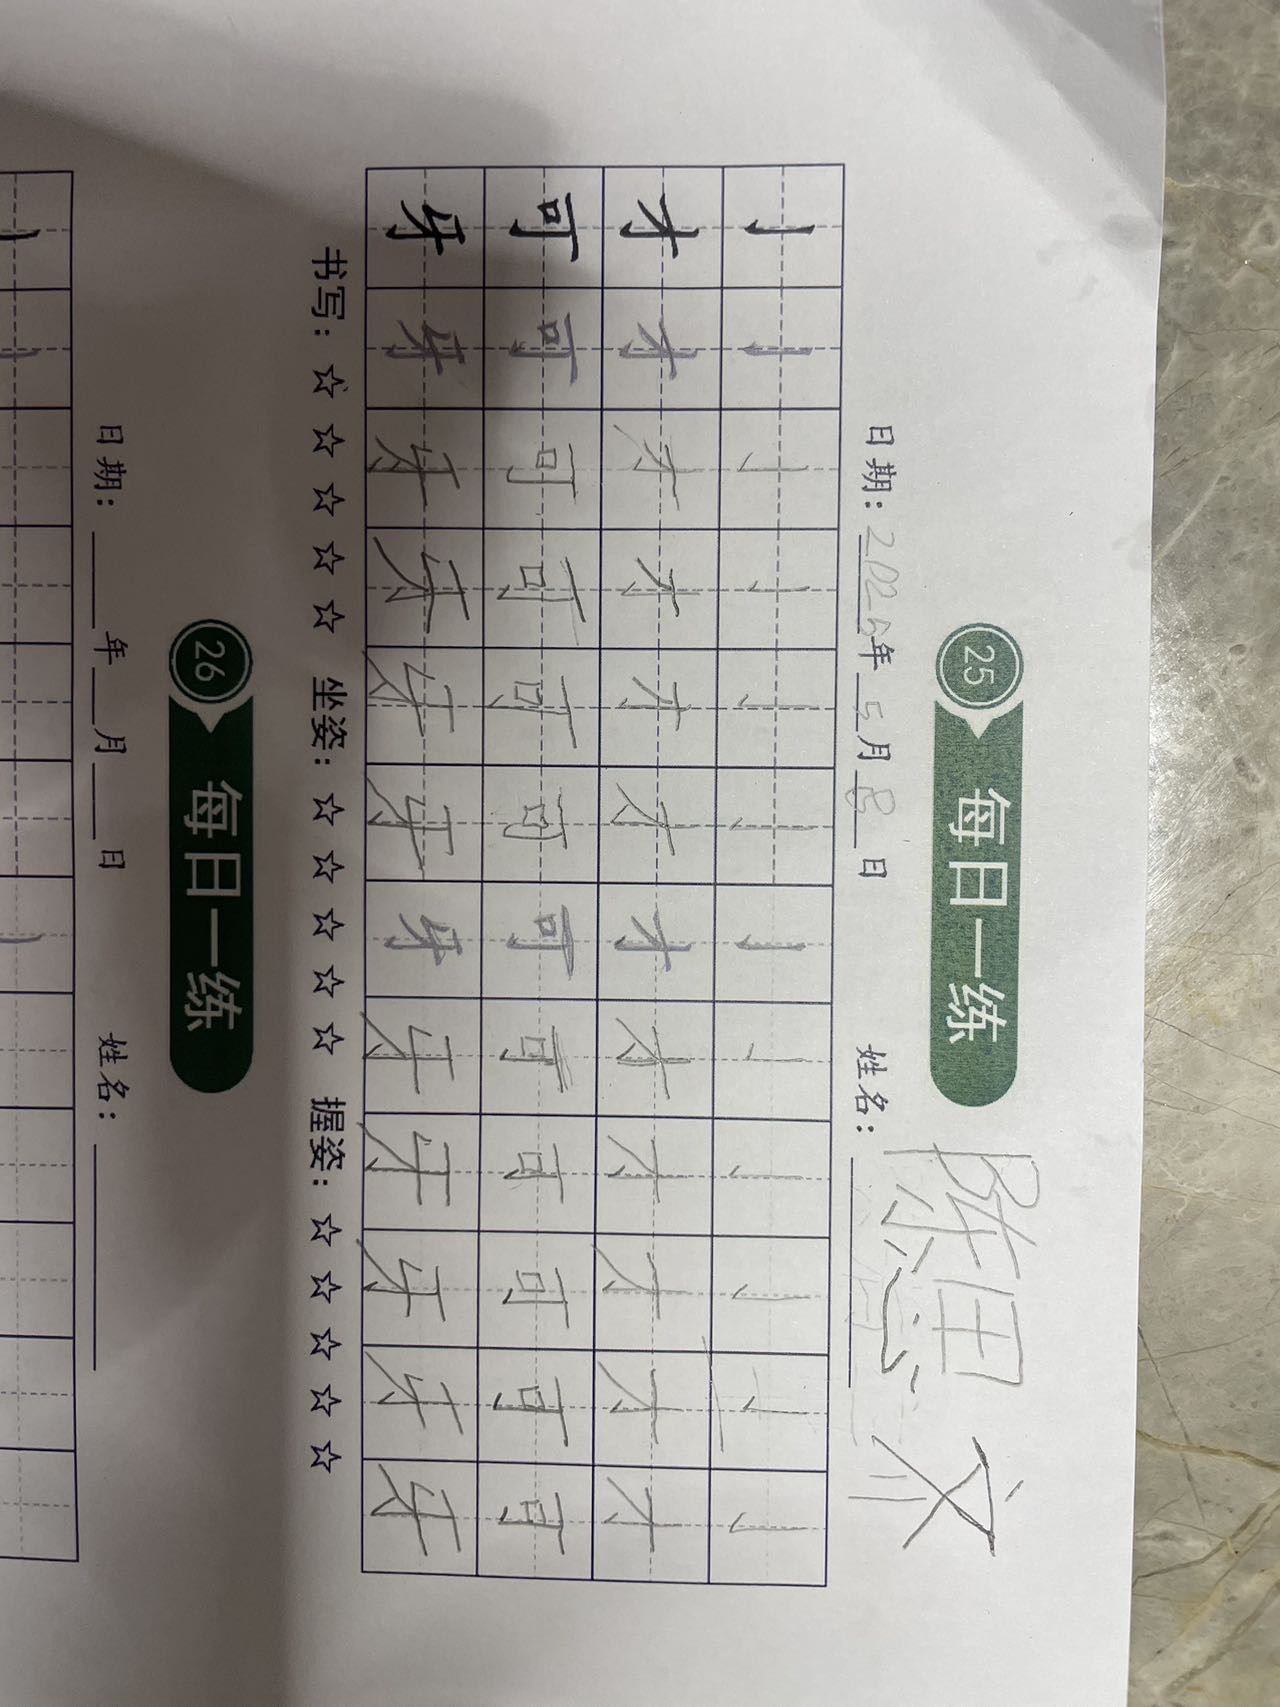 25 每日一练
日期：2025年5月8日 姓名：陈思齐
亅亅亅亅亅亅亅亅亅亅亅亅
才才才才才才才才才才才才
可可可可可可可可可可可可
牙牙牙牙牙牙牙牙牙牙牙牙
书写：☆☆☆☆☆ 坐姿：☆☆☆☆☆ 握姿：☆☆☆☆☆
26 每日一练
日期：____年__月__日 姓名：________